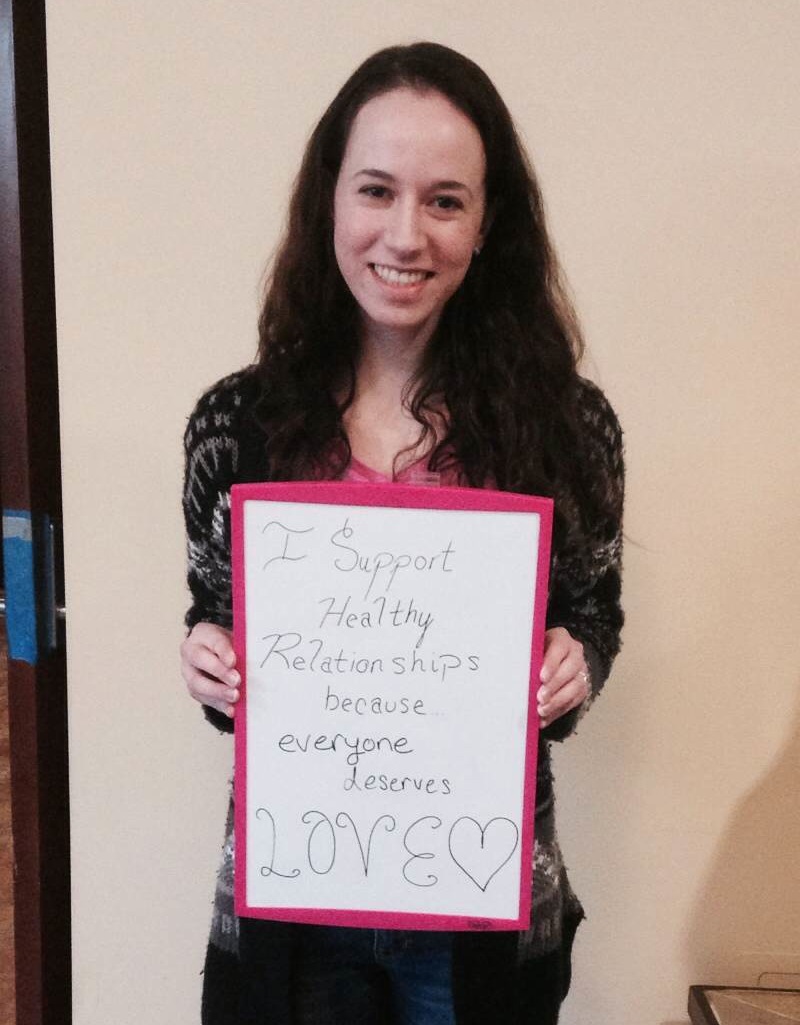 I Support
Healthy
Relationships
because...
everyone
deserves
LOVE